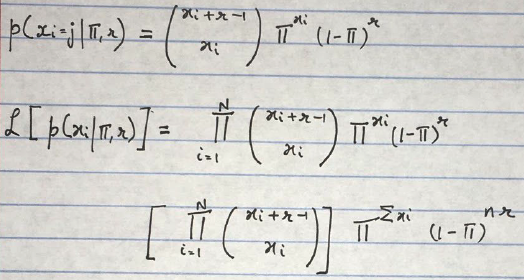 p(xi=j|π,r) = (xi+r-1 xi) π^xi (1-π)^r
L[p(xi|π,r)] = ∏ i=1 N (xi+r-1 xi) π^xi (1-π)^r
[∏ i=1 N (xi+r-1 xi)] π^Σxi (1-π)^nr